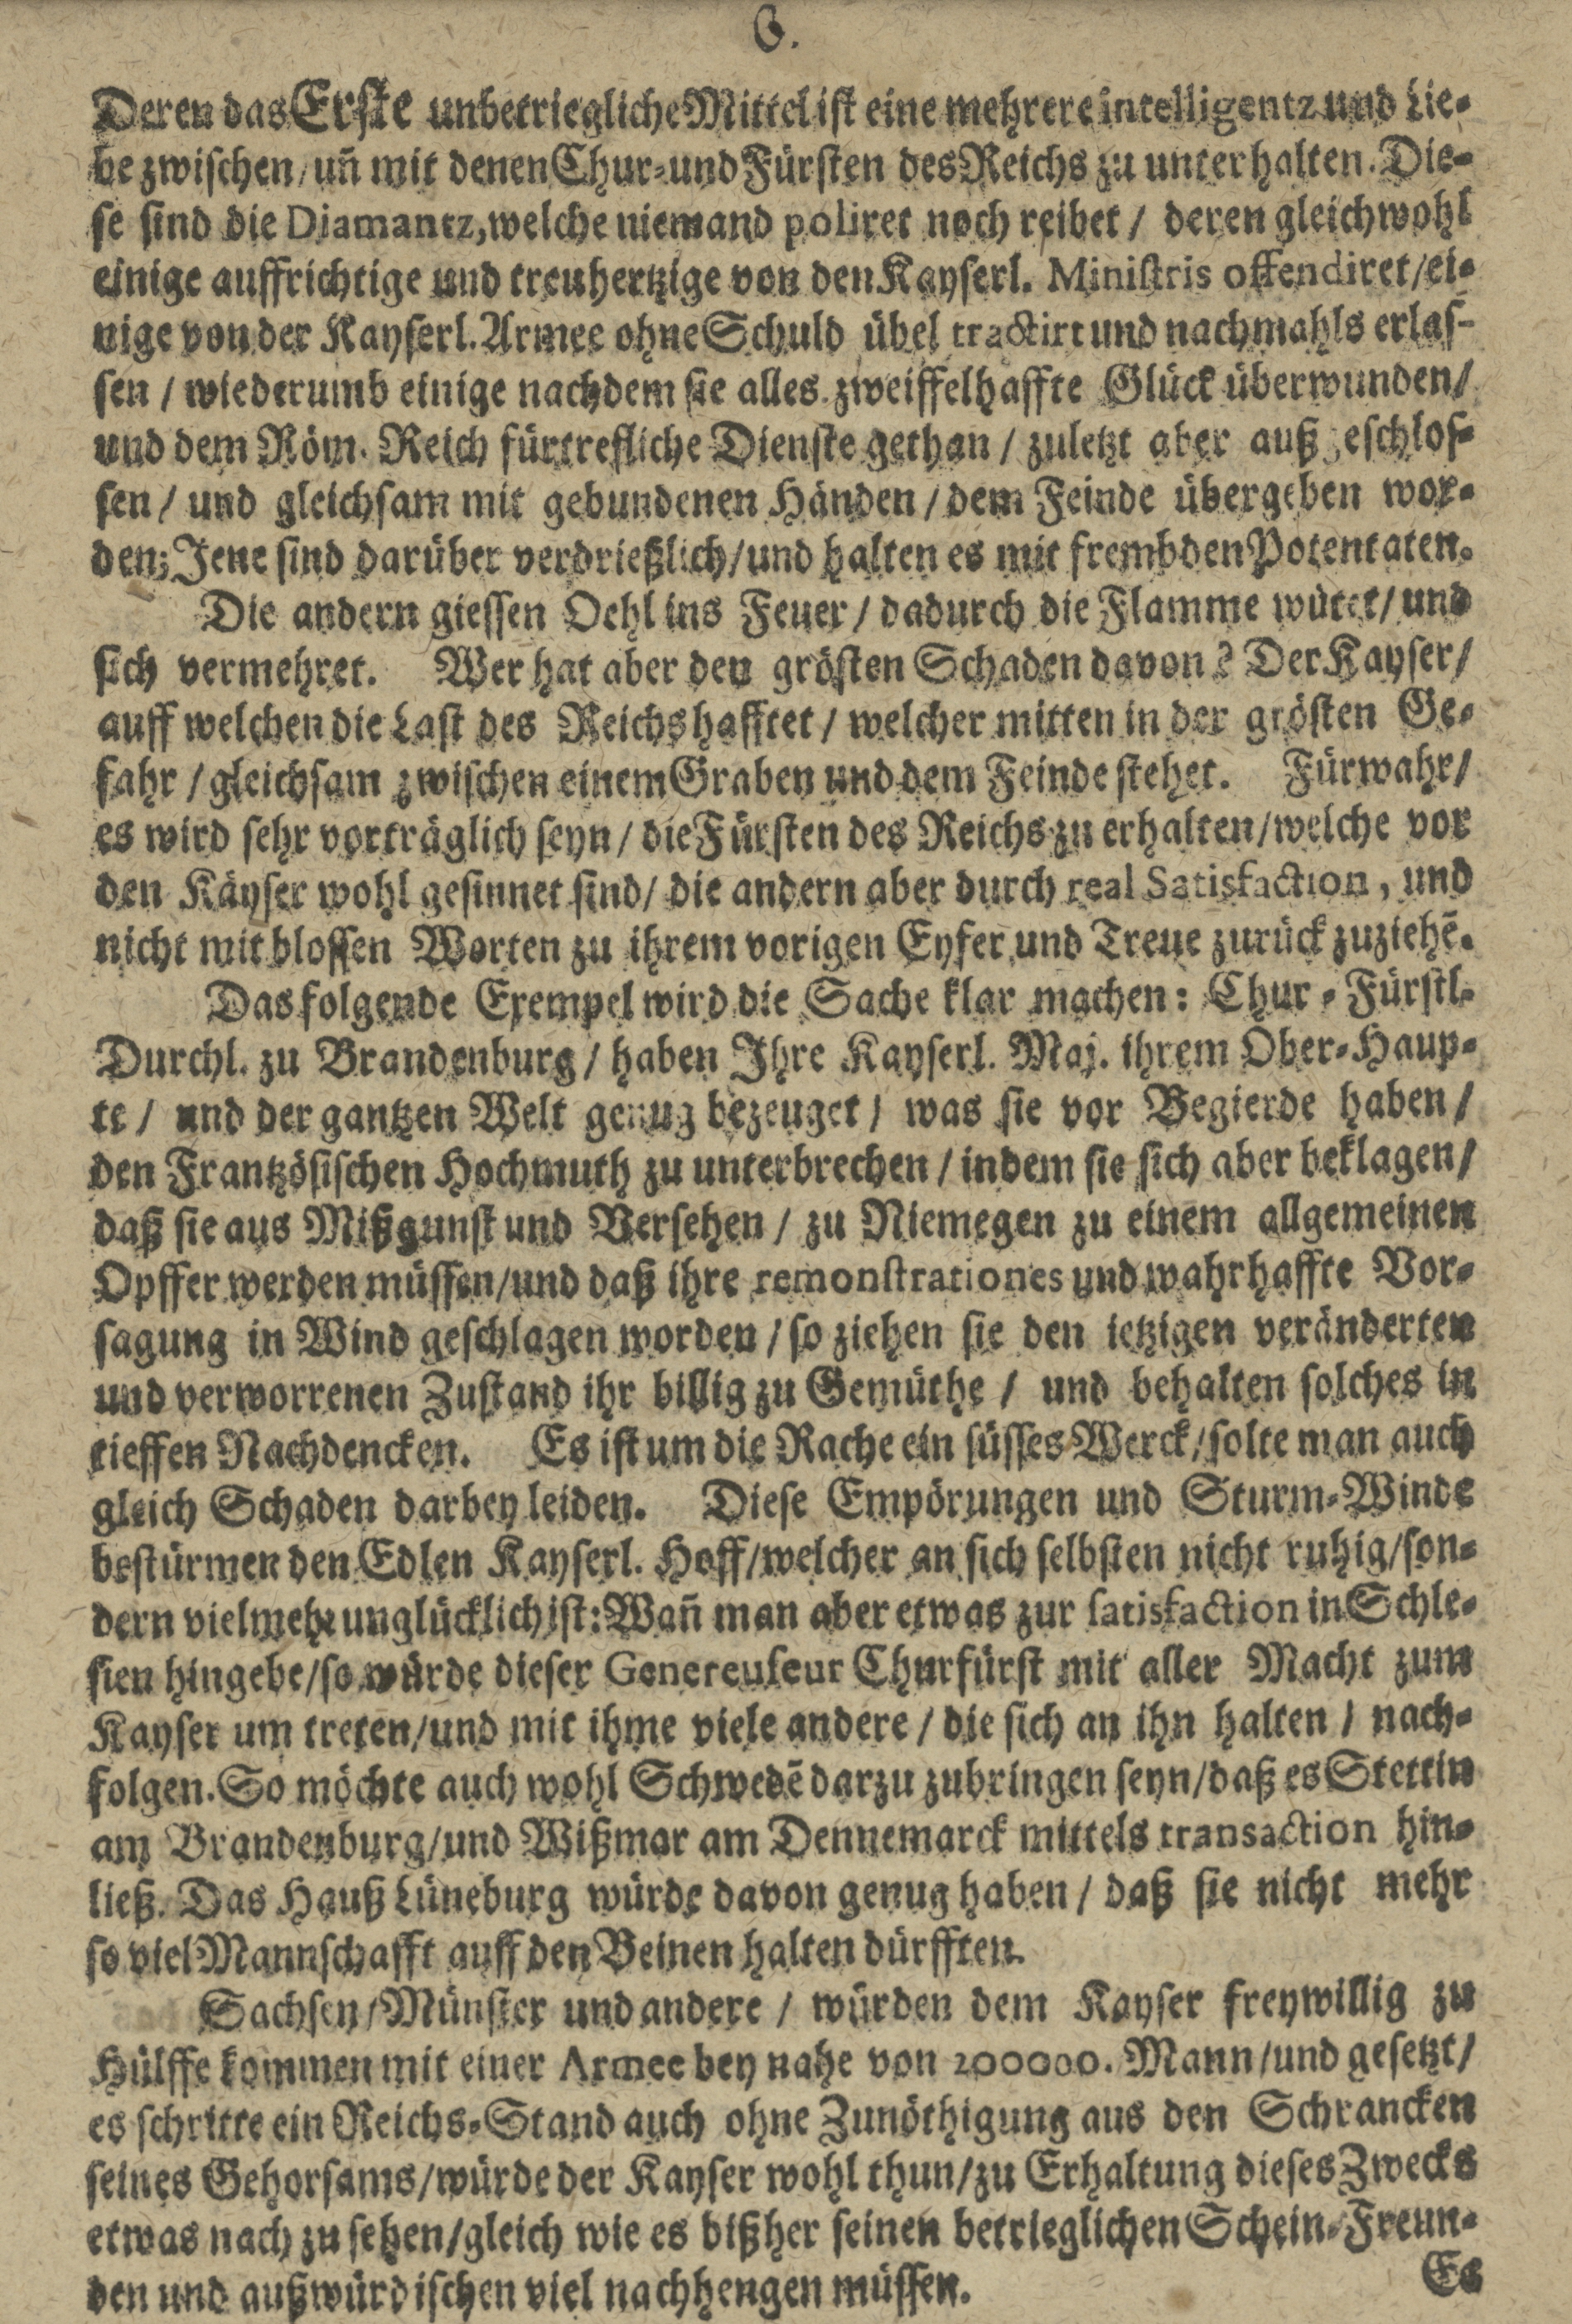 6.
Deren das Erste unbetriegliche Mittel ist eine mehrere intelligentz und Lie-
be zwischen / uñ mit denen Chur- und Fürsten des Reichs zu unterhalten. Die-
se sind die Diamantz, welche niemand poliret noch reibet / deren gleichwohl
einige auffrichtige und treuhertzige von den Kayserl. Ministris offendiret / ei-
nige von der Kayserl. Armee ohne Schuld übel tractirt und nachmahls erlas-
sen / wiederumb einige nachdem sie alles zweiffelhaffte Glück überwunden /
und dem Röm. Reich fürtrefliche Dienste gethan / zuletzt aber außgeschlos-
sen / und gleichsam mit gebundenen Händen / dem Feinde übergeben wor-
den; Jene sind darüber verdrießlich / und halten es mit frembden Potentaten.
Die andern giessen Oehl ins Feuer / dadurch die Flamme wütet / und
sich vermehret. Wer hat aber den grösten Schaden davon? Der Kayser /
auff welchen die Last des Reichs hafftet / welcher mitten in der grösten Ge-
fahr / gleichsam zwischen einem Graben und dem Feinde stehet. Fürwahr /
es wird sehr vorträglich seyn / die Fürsten des Reichs zu erhalten / welche vor
den Käyser wohl gesinnet sind / die andern aber durch real Satisfaction, und
nicht mit blossen Worten zu ihrem vorigen Eyfer und Treue zurück zuziehē.
Das folgende Exempel wird die Sache klar machen: Chur-Fürstl.
Durchl. zu Brandenburg / haben Ihre Kayserl. Maj. ihrem Ober-Haup-
te / und der gantzen Welt genug bezeuget / was sie vor Begierde haben /
den Frantzösischen Hochmuth zu unterbrechen / indem sie sich aber beklagen /
daß sie aus Mißgunst und Versehen / zu Niemegen zu einem allgemeinen
Opffer werden müssen / und daß ihre remonstrationes und wahrhaffte Vor-
sagung in Wind geschlagen worden / so ziehen sie den ietzigen veränderten
und verworrenen Zustand ihr billig zu Gemüthe / und behalten solches in
tieffen Nachdencken. Es ist um die Rache ein süsses Werck / solte man auch
gleich Schaden darbey leiden. Diese Empörungen und Sturm-Winde
bestürmen den Edlen Kayserl. Hoff / welcher an sich selbsten nicht ruhig / son-
dern vielmehr unglücklich ist: Wañ man aber etwas zur satisfaction in Schle-
sien hingebe / so würde dieser Genereuseur Churfürst mit aller Macht zum
Kayser um treten / und mit ihme viele andere / die sich an ihn halten / nach-
folgen. So möchte auch wohl Schwedē darzu zubringen seyn / daß es Stettin
am Brandenburg / und Wißmar am Dennemarck mittels transaction hin-
ließ. Das Hauß Lüneburg würde davon genug haben / daß sie nicht mehr
so viel Mannschafft auff den Beinen halten dürfften.
Sachsen / Münster und andere / würden dem Kayser freywillig zu
Hülffe kommen mit einer Armee bey nahe von 200000. Mann / und gesetzt /
es schritte ein Reichs-Stand auch ohne Zunöthigung aus den Schrancken
seines Gehorsams / würde der Kayser wohl thun / zu Erhaltung dieses Zwecks
etwas nach zu sehen / gleich wie es bißher seinen betrieglichen Schein-Freun-
den und außwürdischen viel nachhengen müssen.
Es